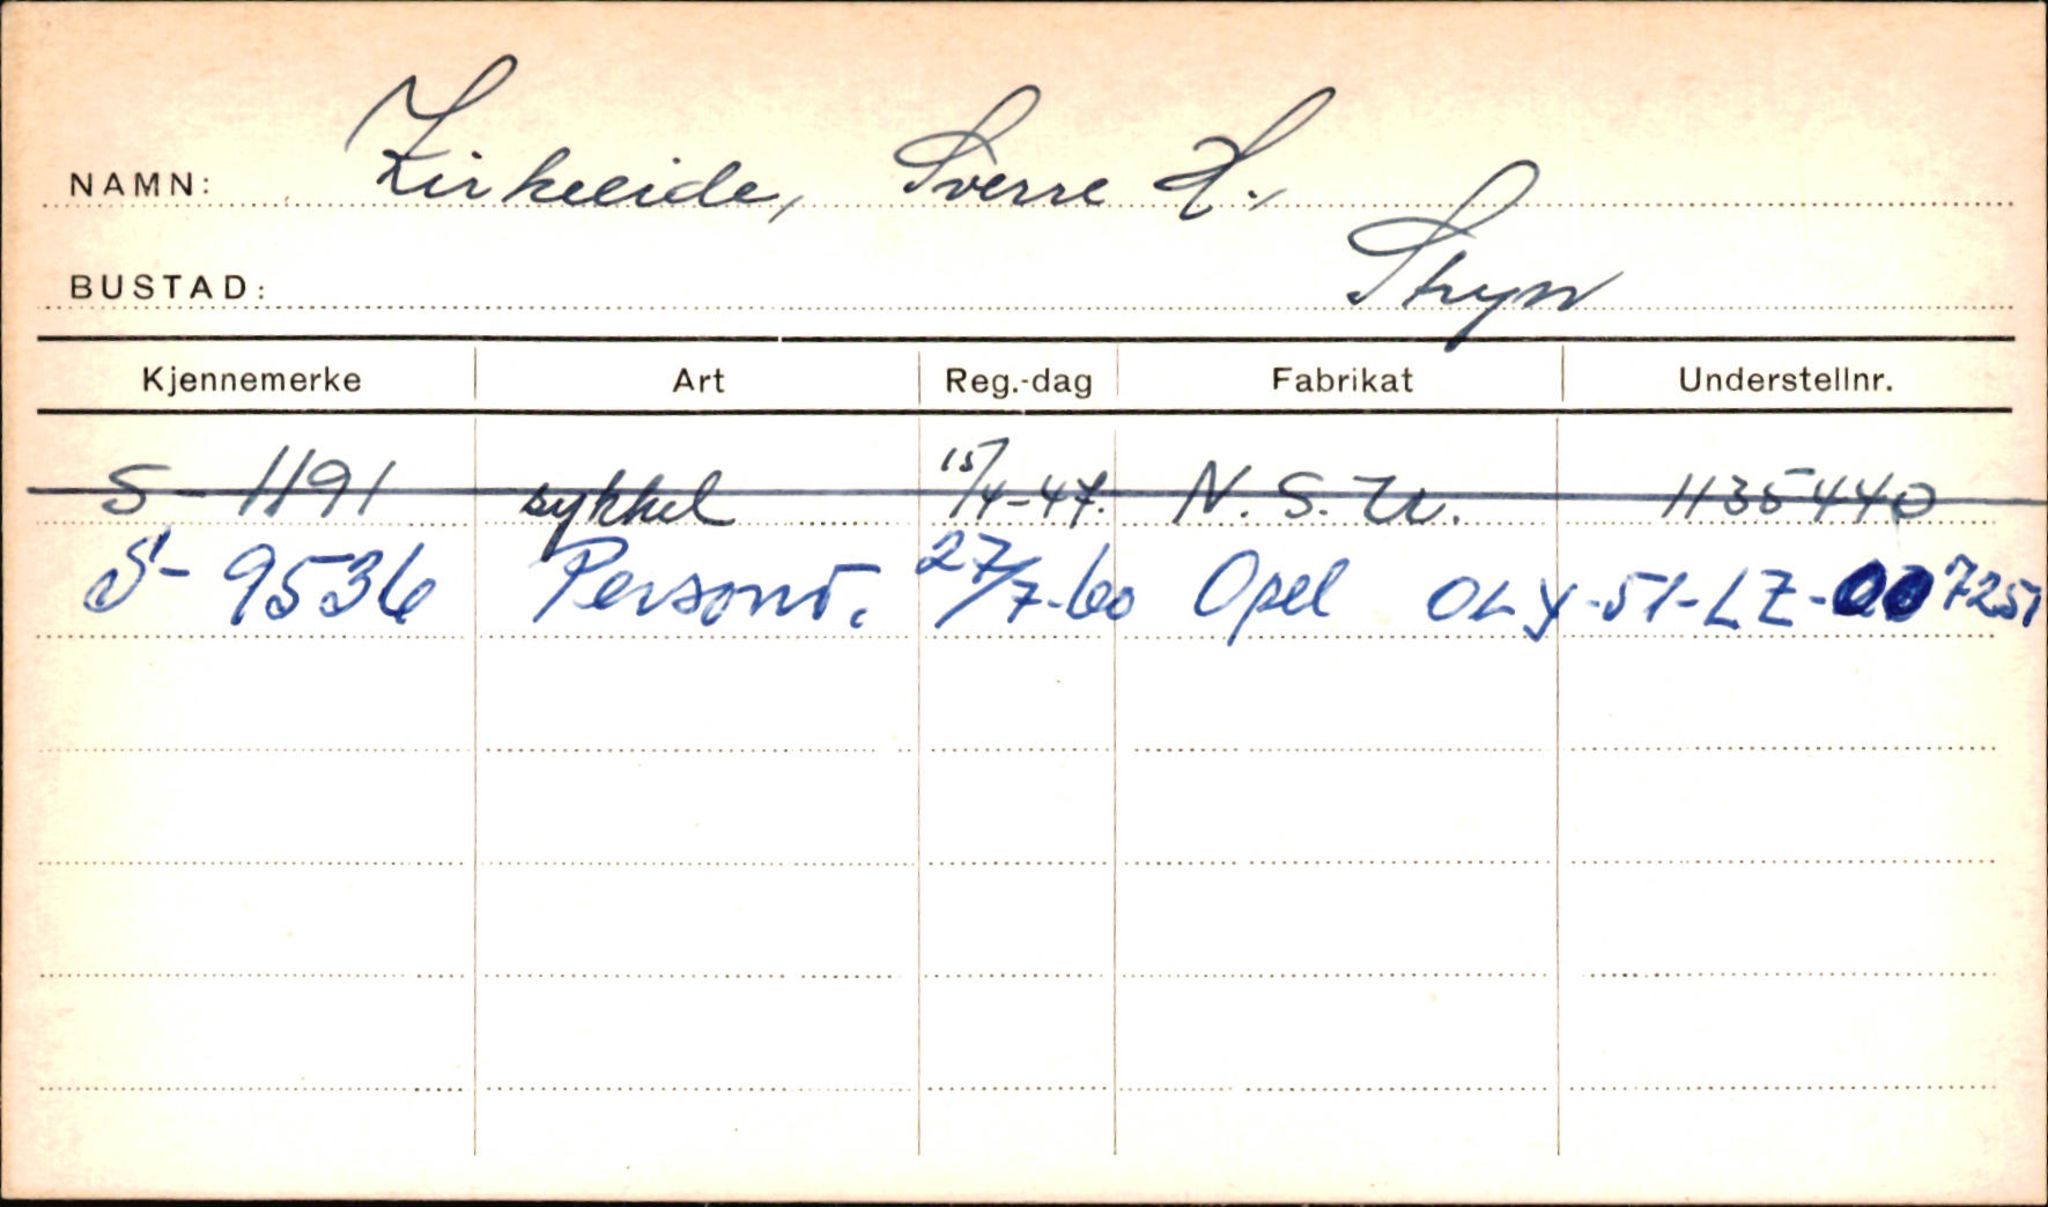 NAMN: Kirkeeide, Sverre H.,
BUSTAD: Stryn
Kjennemerke Art Reg.-dag Fabrikat Understellnr.
S-1191 sykkel 15/4-47. N.S.U. 1135440
S-9536 Persond. 27/7-60 Opel OLY-51-LZ-007251